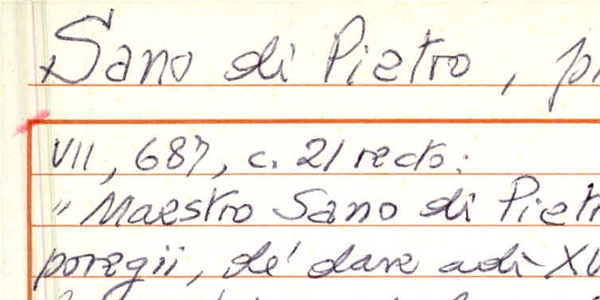 Sano di Pietro, p
VII, 687, c. 21 recto:
"Maestro Sano di Piet
poregii, dé dare adì XV